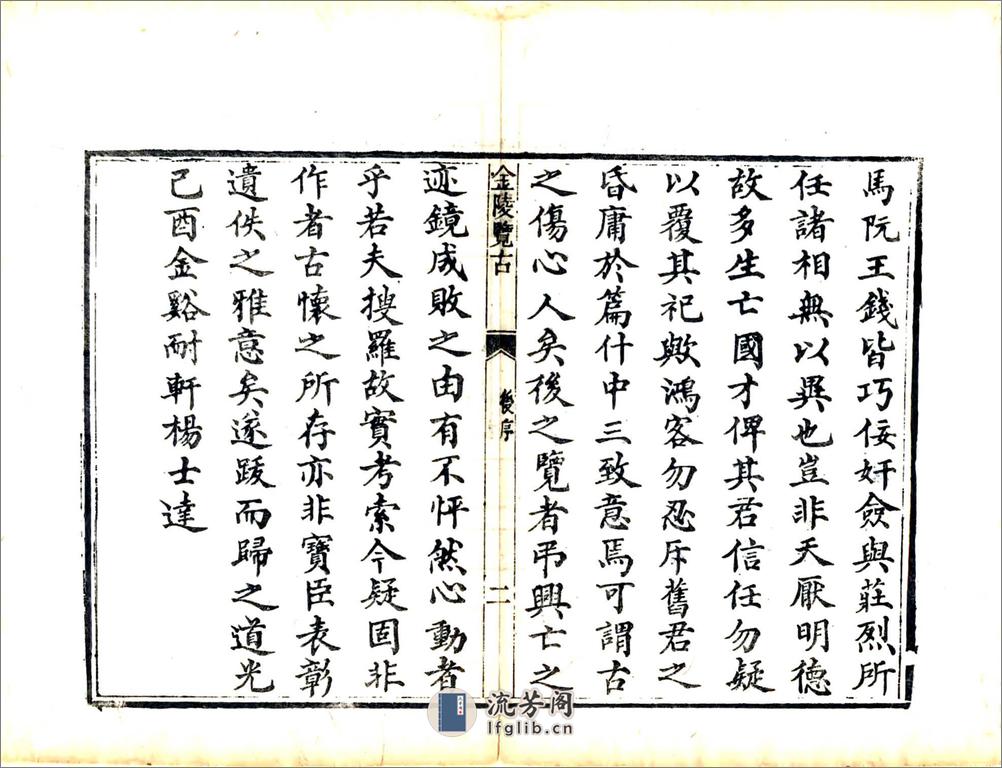 馬阮王錢皆巧佞奸僉與莊烈所
任諸相無以異也豈非天厭明德
故多生亡國才俾其君信任勿疑
以覆其祀歟鴻客勿忍斥舊君之
昏庸於篇什中三致意焉可謂古
之傷心人矣後之覽者弔興亡之
金陵覽古
後序
二
迹鏡成敗之由有不怦然心動者
乎若夫搜羅故實考索今疑固非
作者古懷之所存亦非寶臣表彰
遺佚之雅意矣遂跋而歸之道光
己酉金谿耐軒楊士達
流芳阁
lfglib.cn